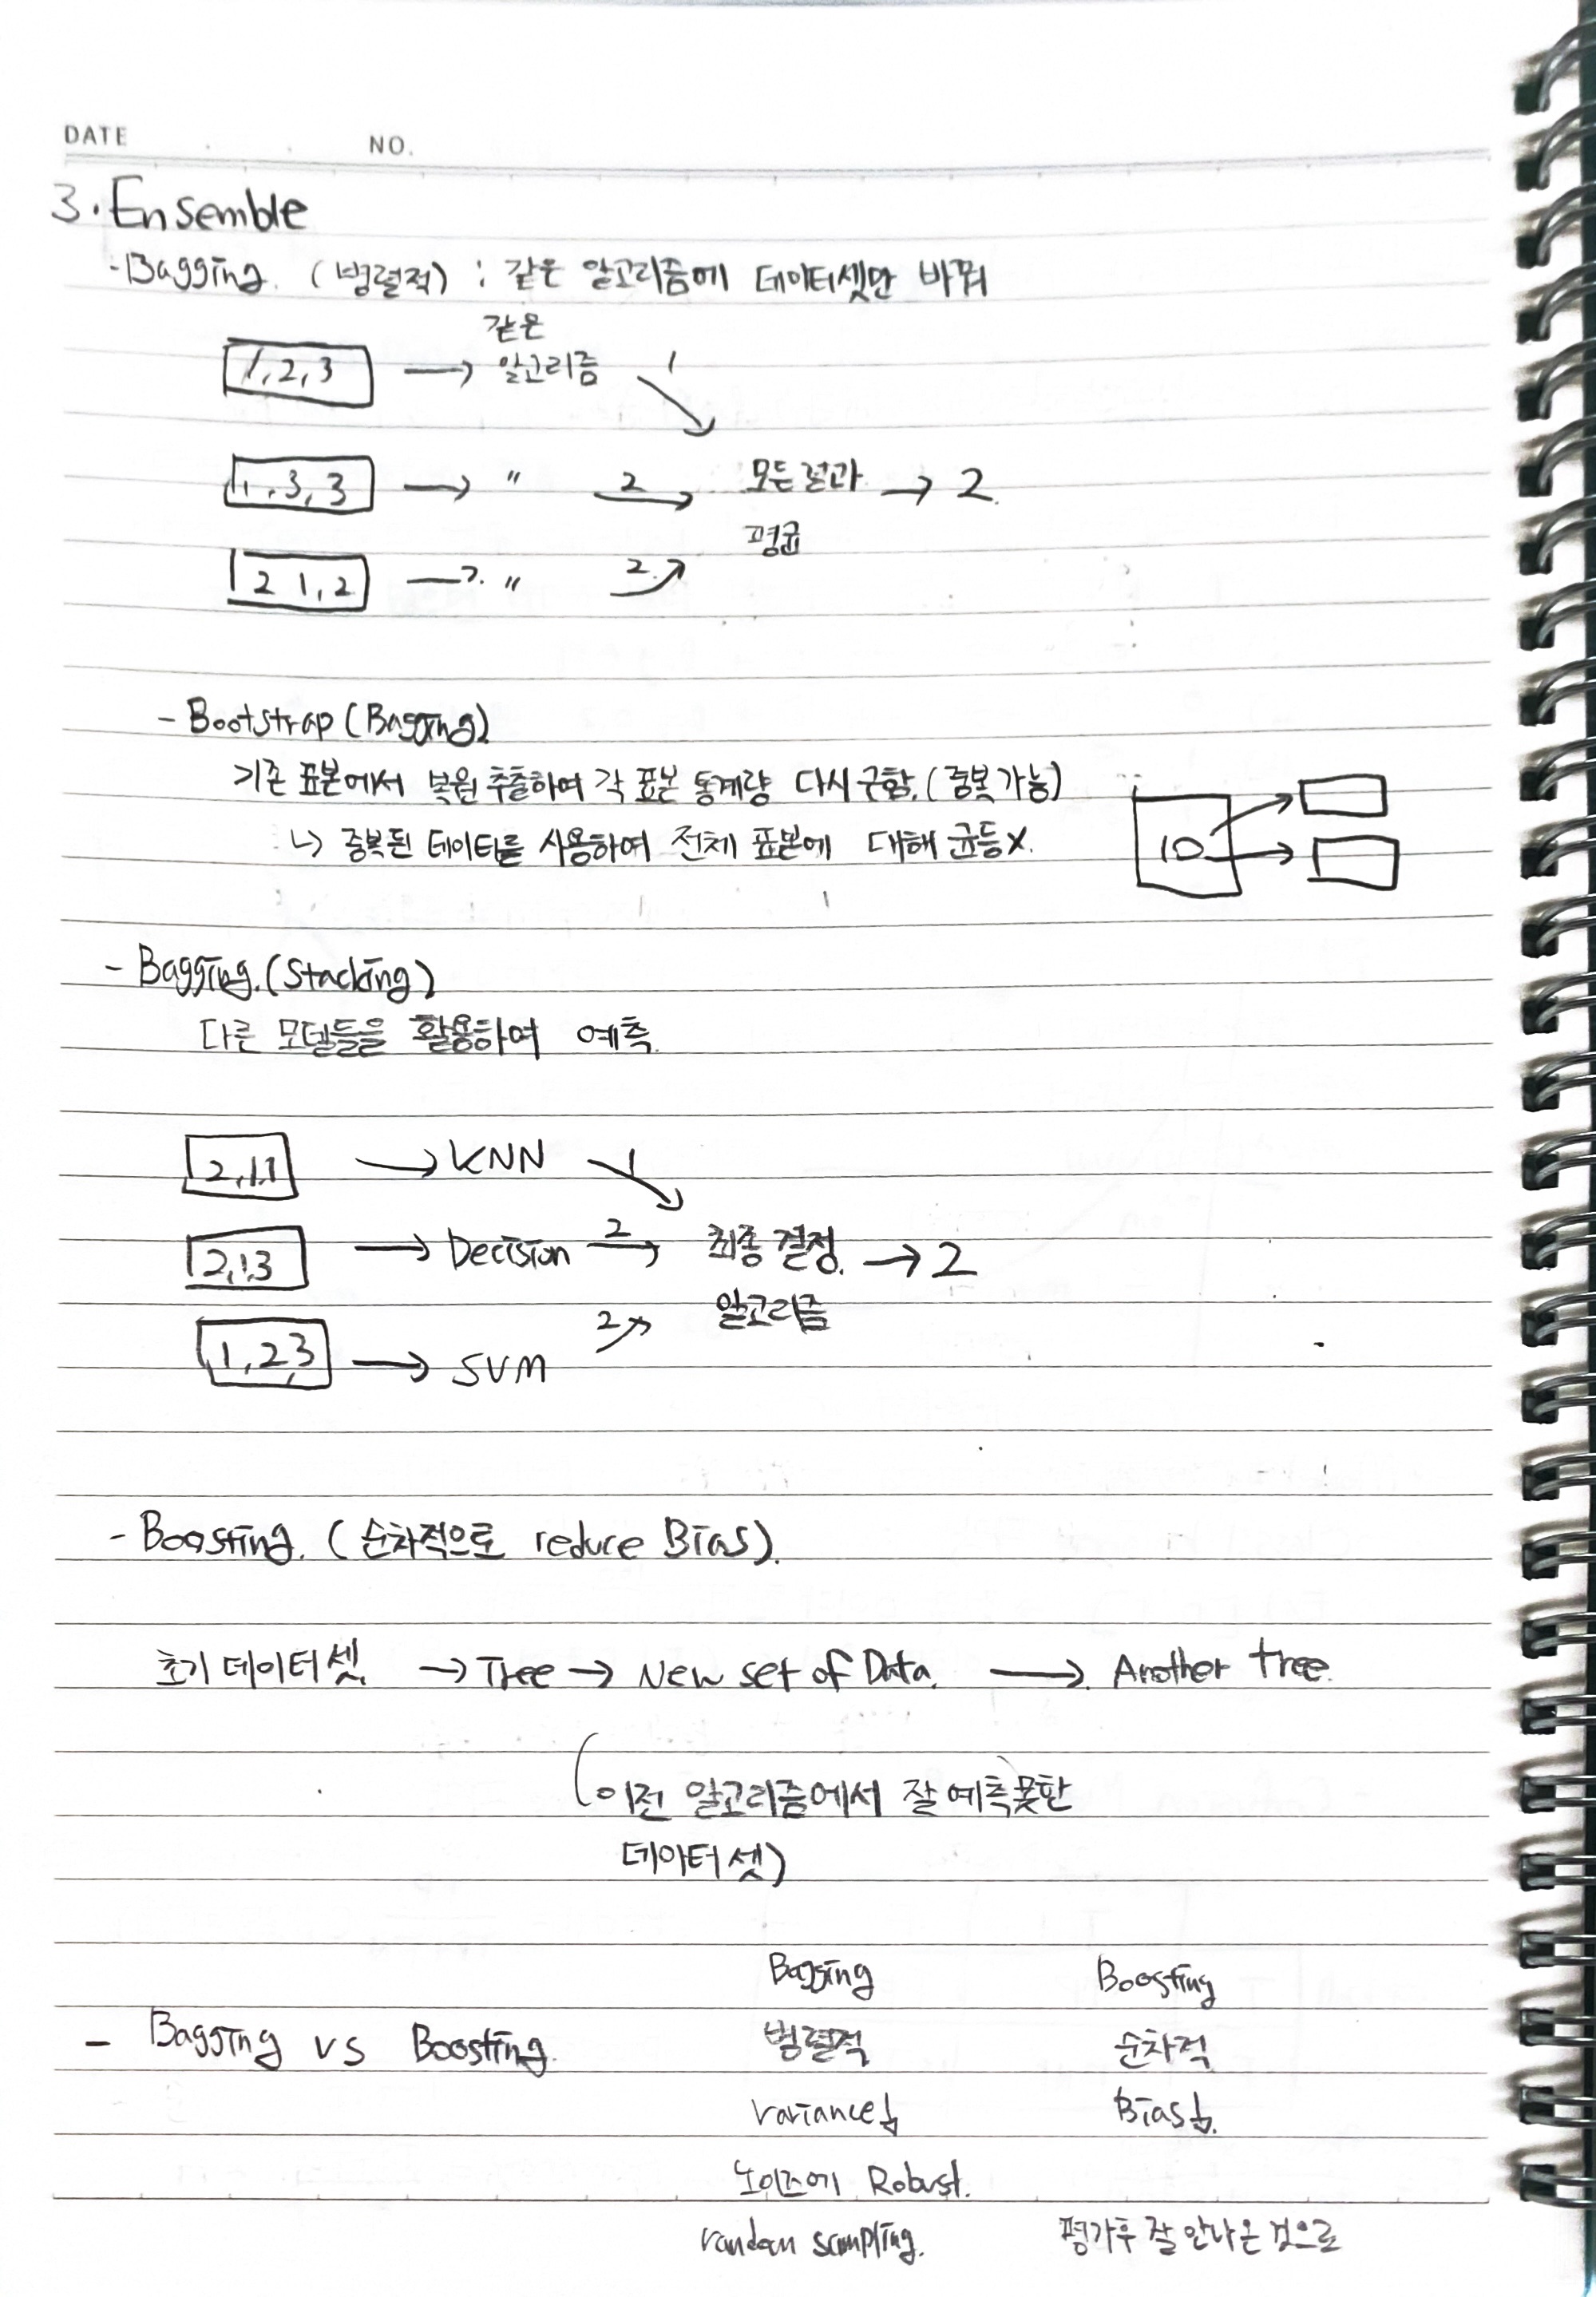 DATE . . NO.
3. Ensemble
- Bagging. (병렬적) : 같은 알고리즘에 데이터셋만 바꿔
같은
1, 2, 3 → 알고리즘 1
1, 3, 3 → " 2 → 모든 결과 → 2.
평균
2 1, 2 → " 2
- Bootstrap (Bagging)
기존 표본에서 복원 추출하여 각 표본 통계량 다시 구함. (중복 가능)
10
↳ 중복된 데이터를 사용하여 전체 표본에 대해 균등 X.
- Bagging. (Stacking)
다른 모델들을 활용하여 예측.
2, 1, 1 → KNN 1
2, 1, 3 → Decision 2 → 최종 결정. → 2
2 알고리즘
1, 2, 3 → SVM
- Boosting. (순차적으로 reduce Bias).
초기 데이터 셋. → Tree → New set of Data. → Another tree.
(이전 알고리즘에서 잘 예측 못한
데이터 셋)
Bagging Boosting
- Bagging vs Boosting. 병렬적 순차적
variance↓ Bias↓.
노이즈에 Robust.
random sampling. 평가후 잘 안나온 것으로